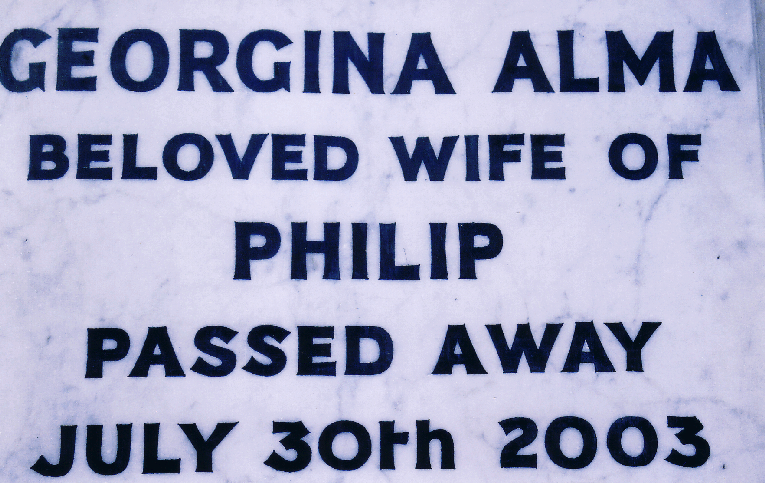 GEORGINA ALMA
BELOVED WIFE OF
PHILIP
PASSED AWAY
JULY 30th 2003